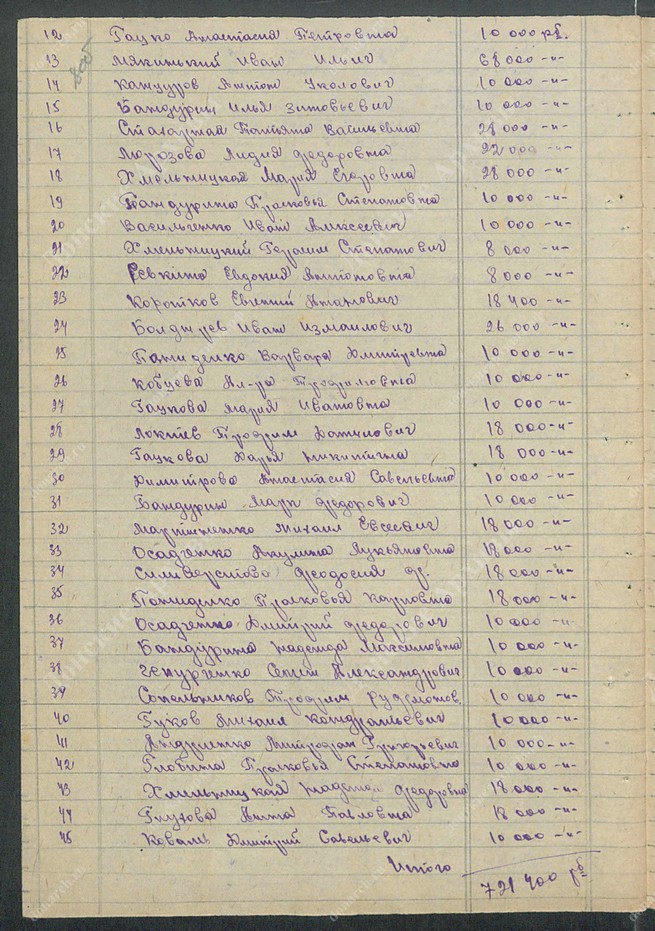 12 Гацко Анастасия Петровна 10 000 рб.
13 Мякинький Иван Ильич 68 000 -„-
14 Канцуров Антон 10 000 -„-
15 Бандурин Илья Зиновьевич 10 000 -„-
16 Татьяна Васильевна 28 000 -„-
17 Морозова Лидия Федоровна 22 000 -„-
18 Хмельницкая Мария Егоровна 28 000 -„-
19 Бандурина Прасковья Степановна 10 000 -„-
20 Васильченко Иван Алексеевич 10 000 -„-
21 Хмельницкий Герасим Степанович 8 000 -„-
22 Евдокия Антоновна 8 000 -„-
23 Коротков Евгений 18 400 -„-
24 Болдырев Иван Измаилович 26 000 -„-
25 Паниденко Варвара Дмитревна 10 000 -„-
26 Кобцева Ал-ра Трофимовна 10 000 -„-
27 Гацкова Мария Ивановна 10 000 -„-
28 Локтев Трофим Данилович 18 000 -„-
29 Гацкова Дарья Никитична 18 000 -„-
30 Димитрова Анастасия Савельевна 10 000 -„-
31 Бандурин Марк Федорович 10 000 -„-
32 Мартыненко Михаил Евсеевич 18 000 -„-
33 Осадченко Акулина Лукьяновна 18 000 -„-
34 Силиверстова Феодосия Ф. 18 000 -„-
35 Паниденко Прасковья Карповна 18 000 -„-
36 Осадченко Дмитрий Федорович 10 000 -„-
37 Бандурина Надежда Максимовна 10 000 -„-
38 Чепурченко Семен Александрович 10 000 -„-
39 Сопельников Трофим 10 000 -„-
40 Гуков Михаил Кондратьевич 10 000 -„-
41 Андрющенко Митрофан Григорьевич 10 000 -„-
42 Глобина Прасковья Степановна 10 000 -„-
43 Хмельницкая Надежда Федоровна 18 000 -„-
44 Глухова Анна Павловна 18 000 -„-
45 Коваль Дмитрий Савельевич 10 000 -„-
Итого 721 400 рб